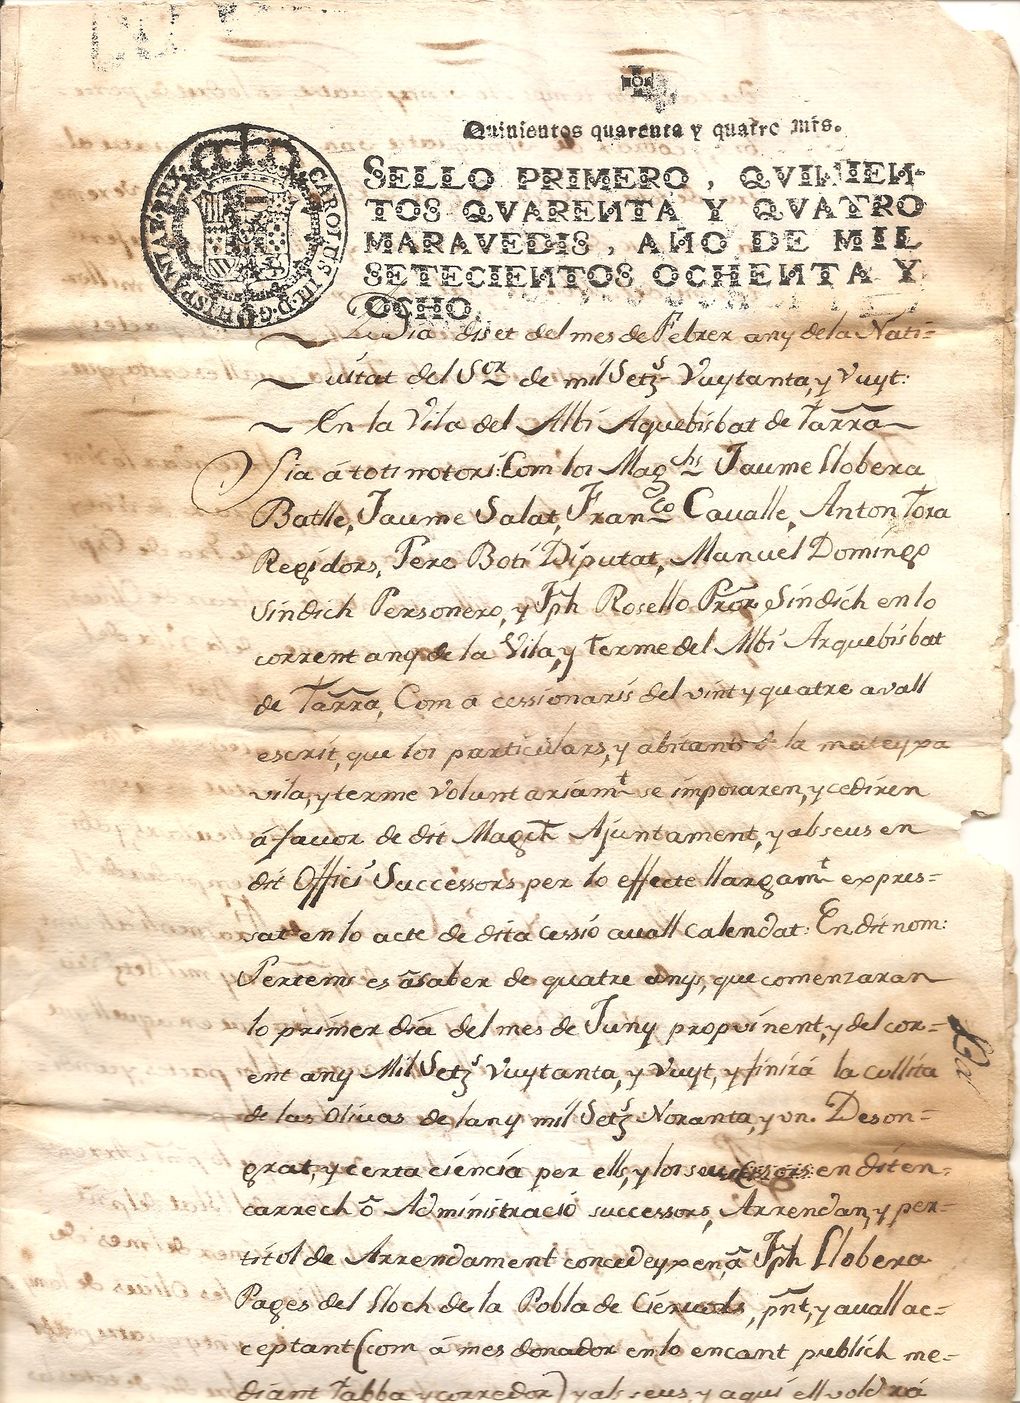 Quinientos quarenta y quatro mrs.
SELLO PRIMERO, QVINIEN-
TOS QVARENTA Y QVATRO
MARAVEDIS, AÑO DE MIL
SETECIENTOS OCHENTA Y
OCHO.
CAROLUS III. D. G. HISPANIAR. REX
Dia diset del mes de Febrer any de la Nati=
uitat del Sor. de mil Setzs. Vuytanta, y Vuyt:
En la Vila del Albi Aquebisbat de Tarra
Sia á tots notori: Com los Magchs. Jaume Llobera
Batlle, Jaume Salat, Franco. Cavalle, Anton Tora
Regidors, Pere Boti Diputat, Manuel Domingo
Sindich Personero, y Jph Rosello Pror. Sindich en lo
corrent any de la Vila, y terme del Albi Arquebisbat
de Tarra, Com a cessionaris del vint y quatre avall
escrit, que los particulars, y abitants de la mateyxa
vila, y terme Voluntariamt. se imposaren, y cediren
á favor de dit Magch Ajuntament, y als seus en
dit Offici Successors per lo effecte llargamt. expres=
sat en lo acte de dita cessió avall calendat: En dit nom:
Per temps es á saber de quatre anys, que comenzaran
lo primer dia del mes de Juny propvinent, y del cor=
ent any Mil Setzs. Vuytanta, y Vuyt, y finirá la cullita
de las Olivas de lany mil Setzs. Noranta, y vn. De son=
grat, y certa ciencia per ells, y los seus successors en dit en=
carrech ó Administració successors, Arrendan, y per=
titol de Arrendament concedeyxen, á Jph Llobera
Pages del Lloch de la Pobla de Ciervols, pnt, y avall ac=
ceptant (com á mes donador en lo encant publich me=
diant tabba y corredor) y als seus, y aqui ell voldrá